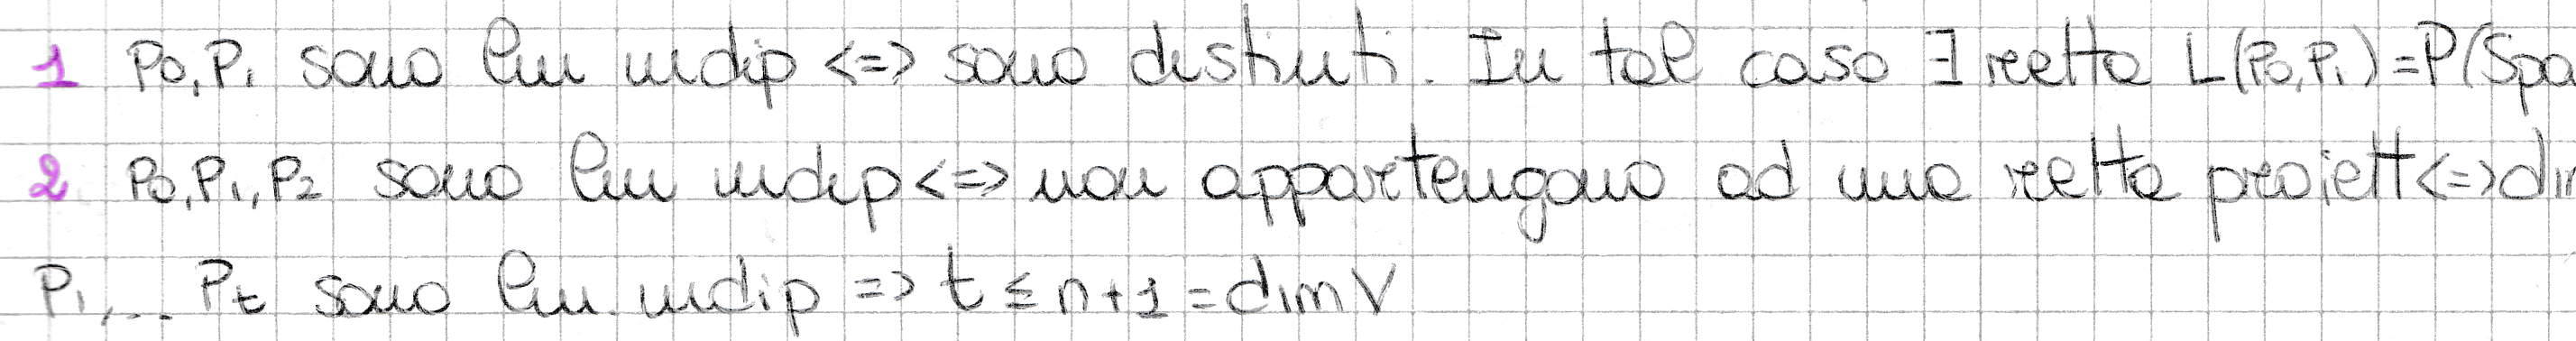 1 P₀,P₁ sono lin indip <=> sono distinti. In tal caso ∃ retta L(P₀,P₁)=P(Spa
2 P₀,P₁,P₂ sono lin indip <=> non appartengono ad una retta proiett <=> dim
P₁,... Pt sono lin. indip => t ≤ n+1 = dim V